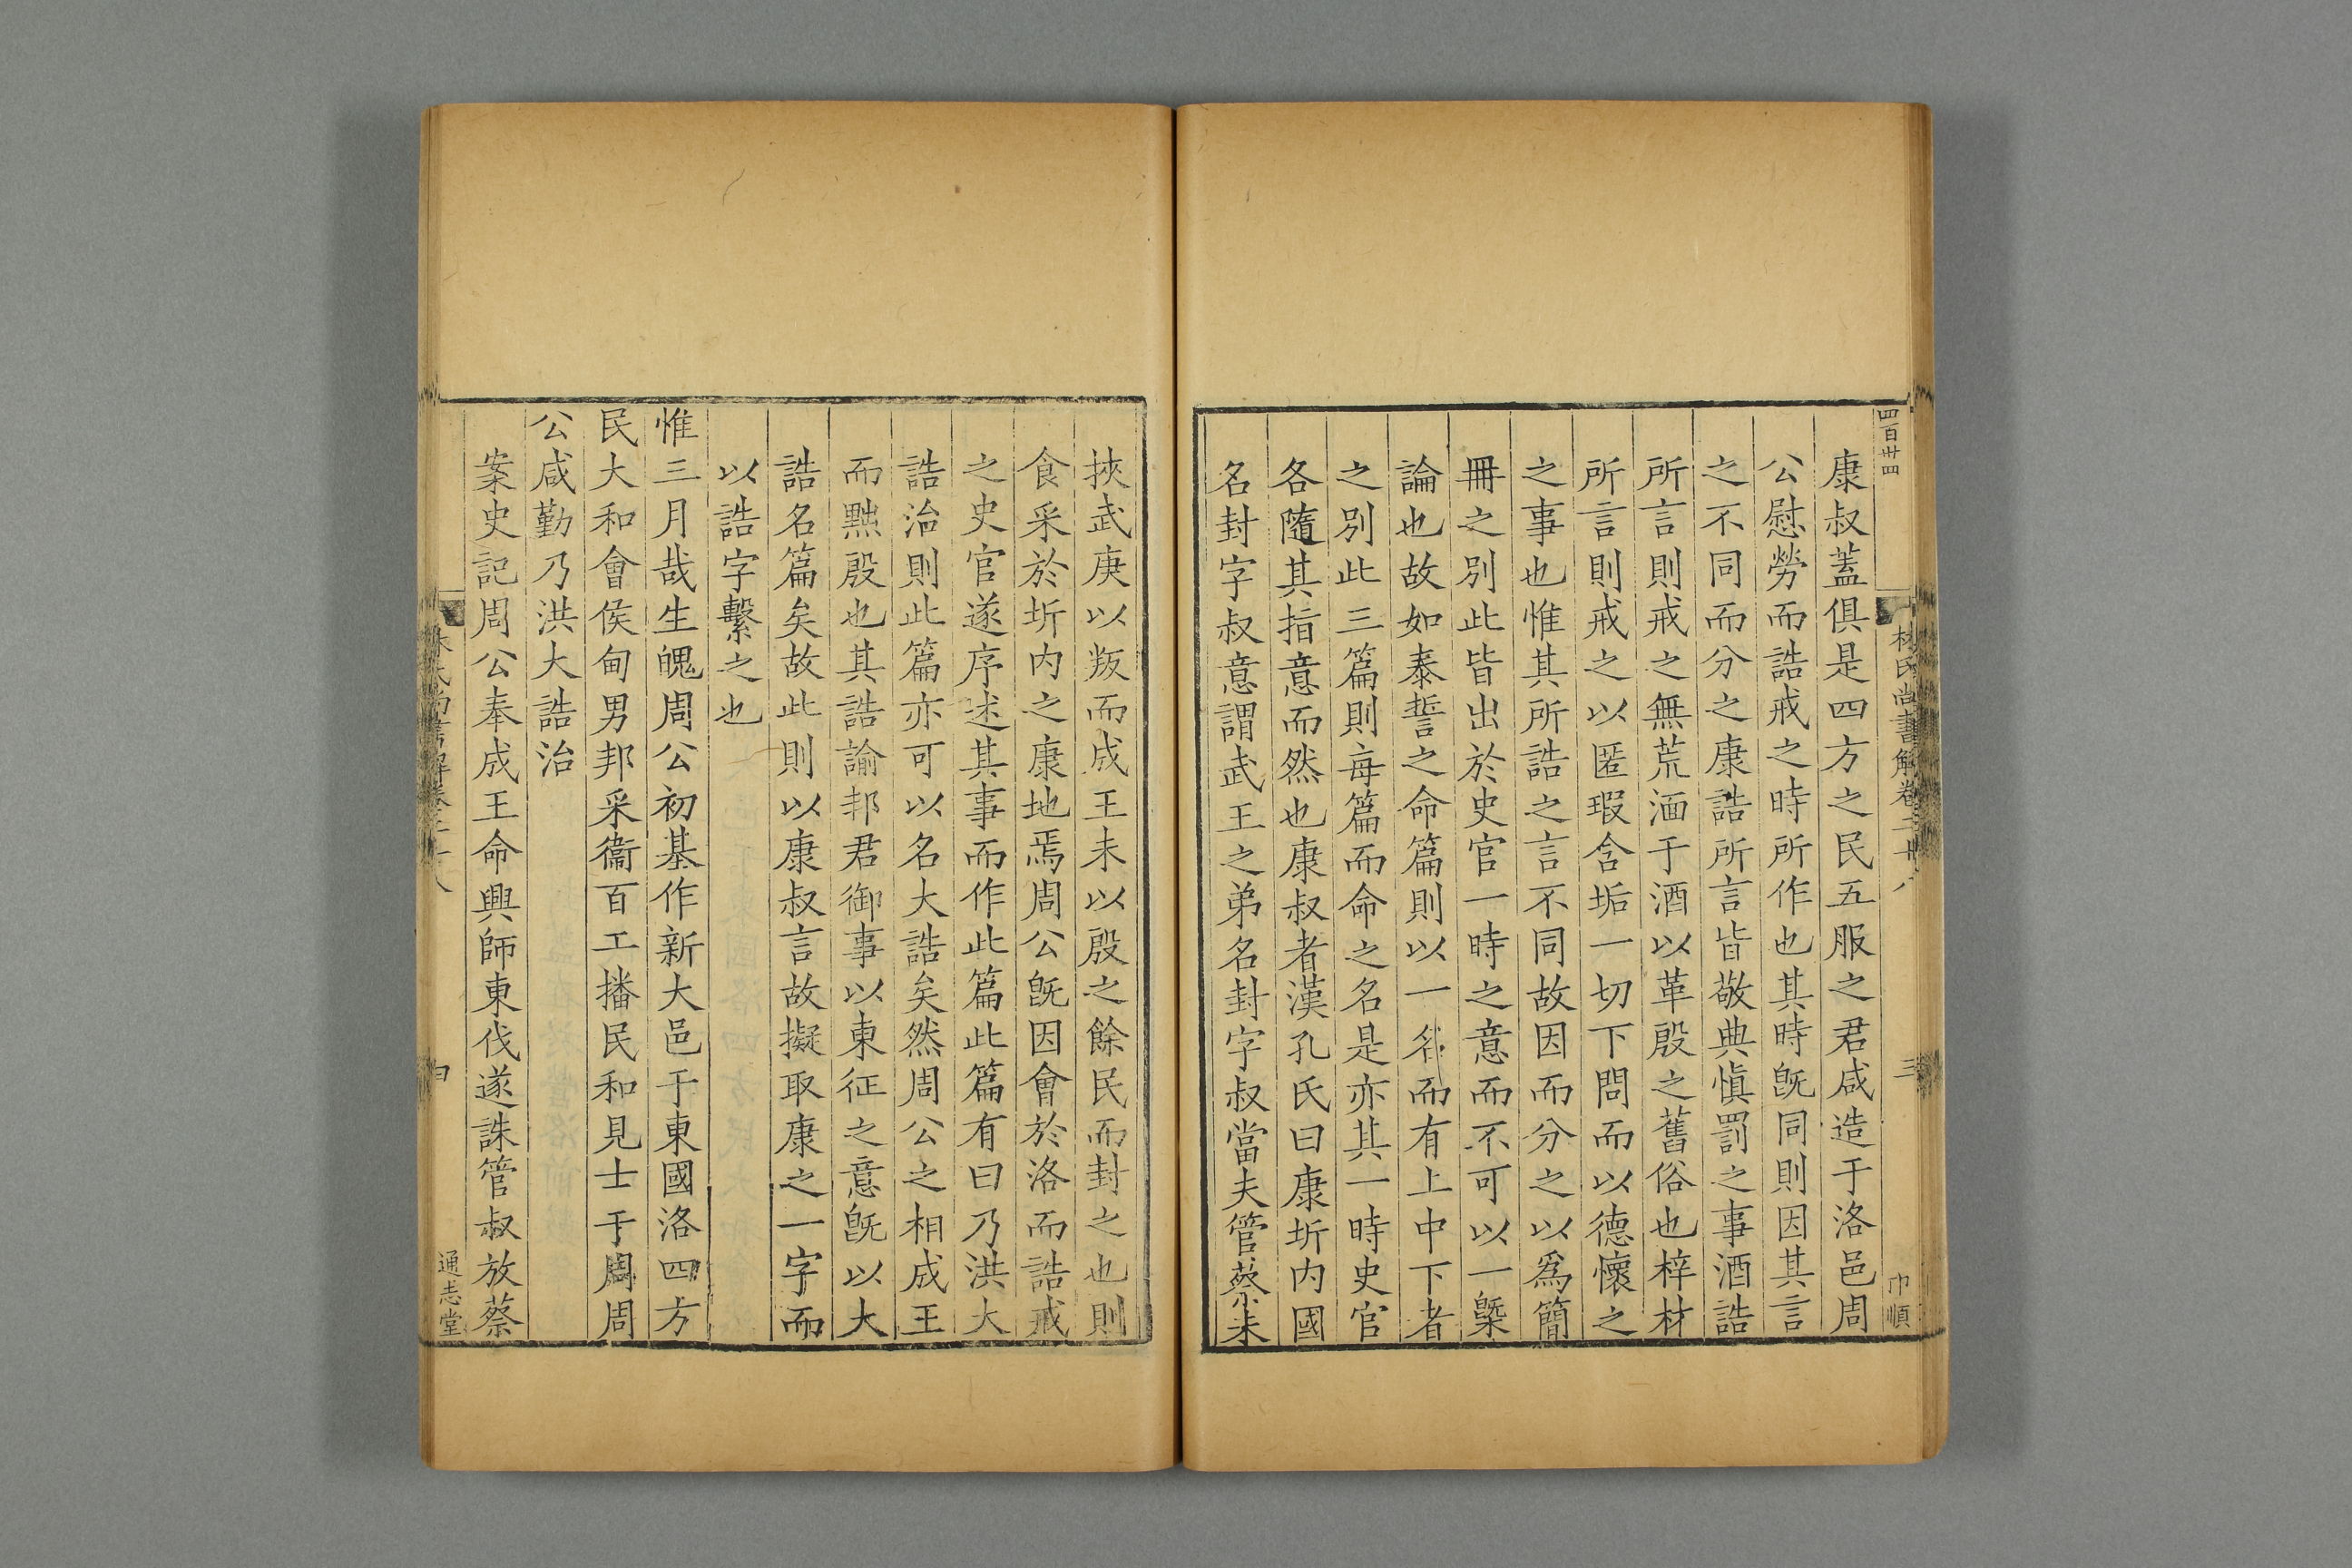 四百卅四
林氏尚書解卷二十八
三
巾順
康叔蓋俱是四方之民五服之君咸造于洛邑周
公慰勞而誥戒之時所作也其時旣同則因其言
之不同而分之康誥所言皆敬典愼罰之事酒誥
所言則戒之無荒湎于酒以革殷之舊俗也梓材
所言則戒之以匿瑕含垢一切下問而以德懷之
之事也惟其所誥之言不同故因而分之以爲簡
冊之別此皆出於史官一時之意而不可以一槩
論也故如泰誓之命篇則以一名而有上中下者
之別此三篇則每篇而命之名是亦其一時史官
各隨其指意而然也康叔者漢孔氏曰康圻内國
名封字叔意謂武王之弟名封字叔當夫管蔡未
挾武庚以叛而成王未以殷之餘民而封之也則
食采於圻内之康地焉周公旣因會於洛而誥戒
之史官遂序述其事而作此篇此篇有曰乃洪大
誥治則此篇亦可以名大誥矣然周公之相成王
而黜殷也其誥諭邦君御事以東征之意旣以大
誥名篇矣故此則以康叔言故擬取康之一字而
以誥字繫之也
惟三月哉生魄周公初基作新大邑于東國洛四方
民大和會侯甸男邦采衞百工播民和見士于周周
公咸勤乃洪大誥治
案史記周公奉成王命興師東伐遂誅管叔放蔡
林氏尚書解卷二十八
通志堂